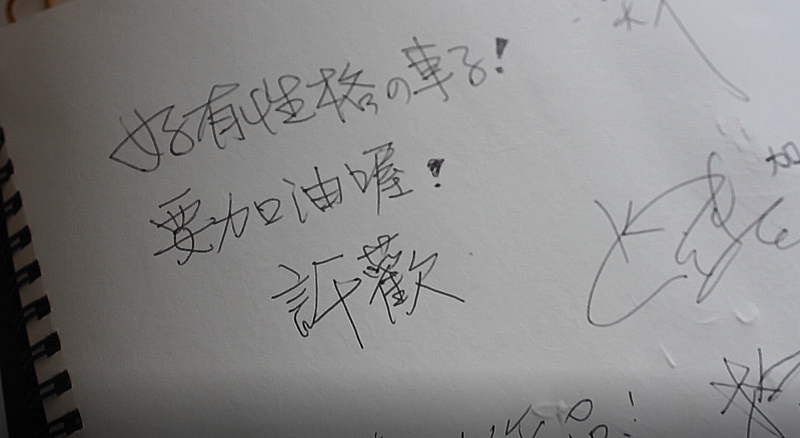 好有性格の車子!
要加油喔!
許歡
加
品!